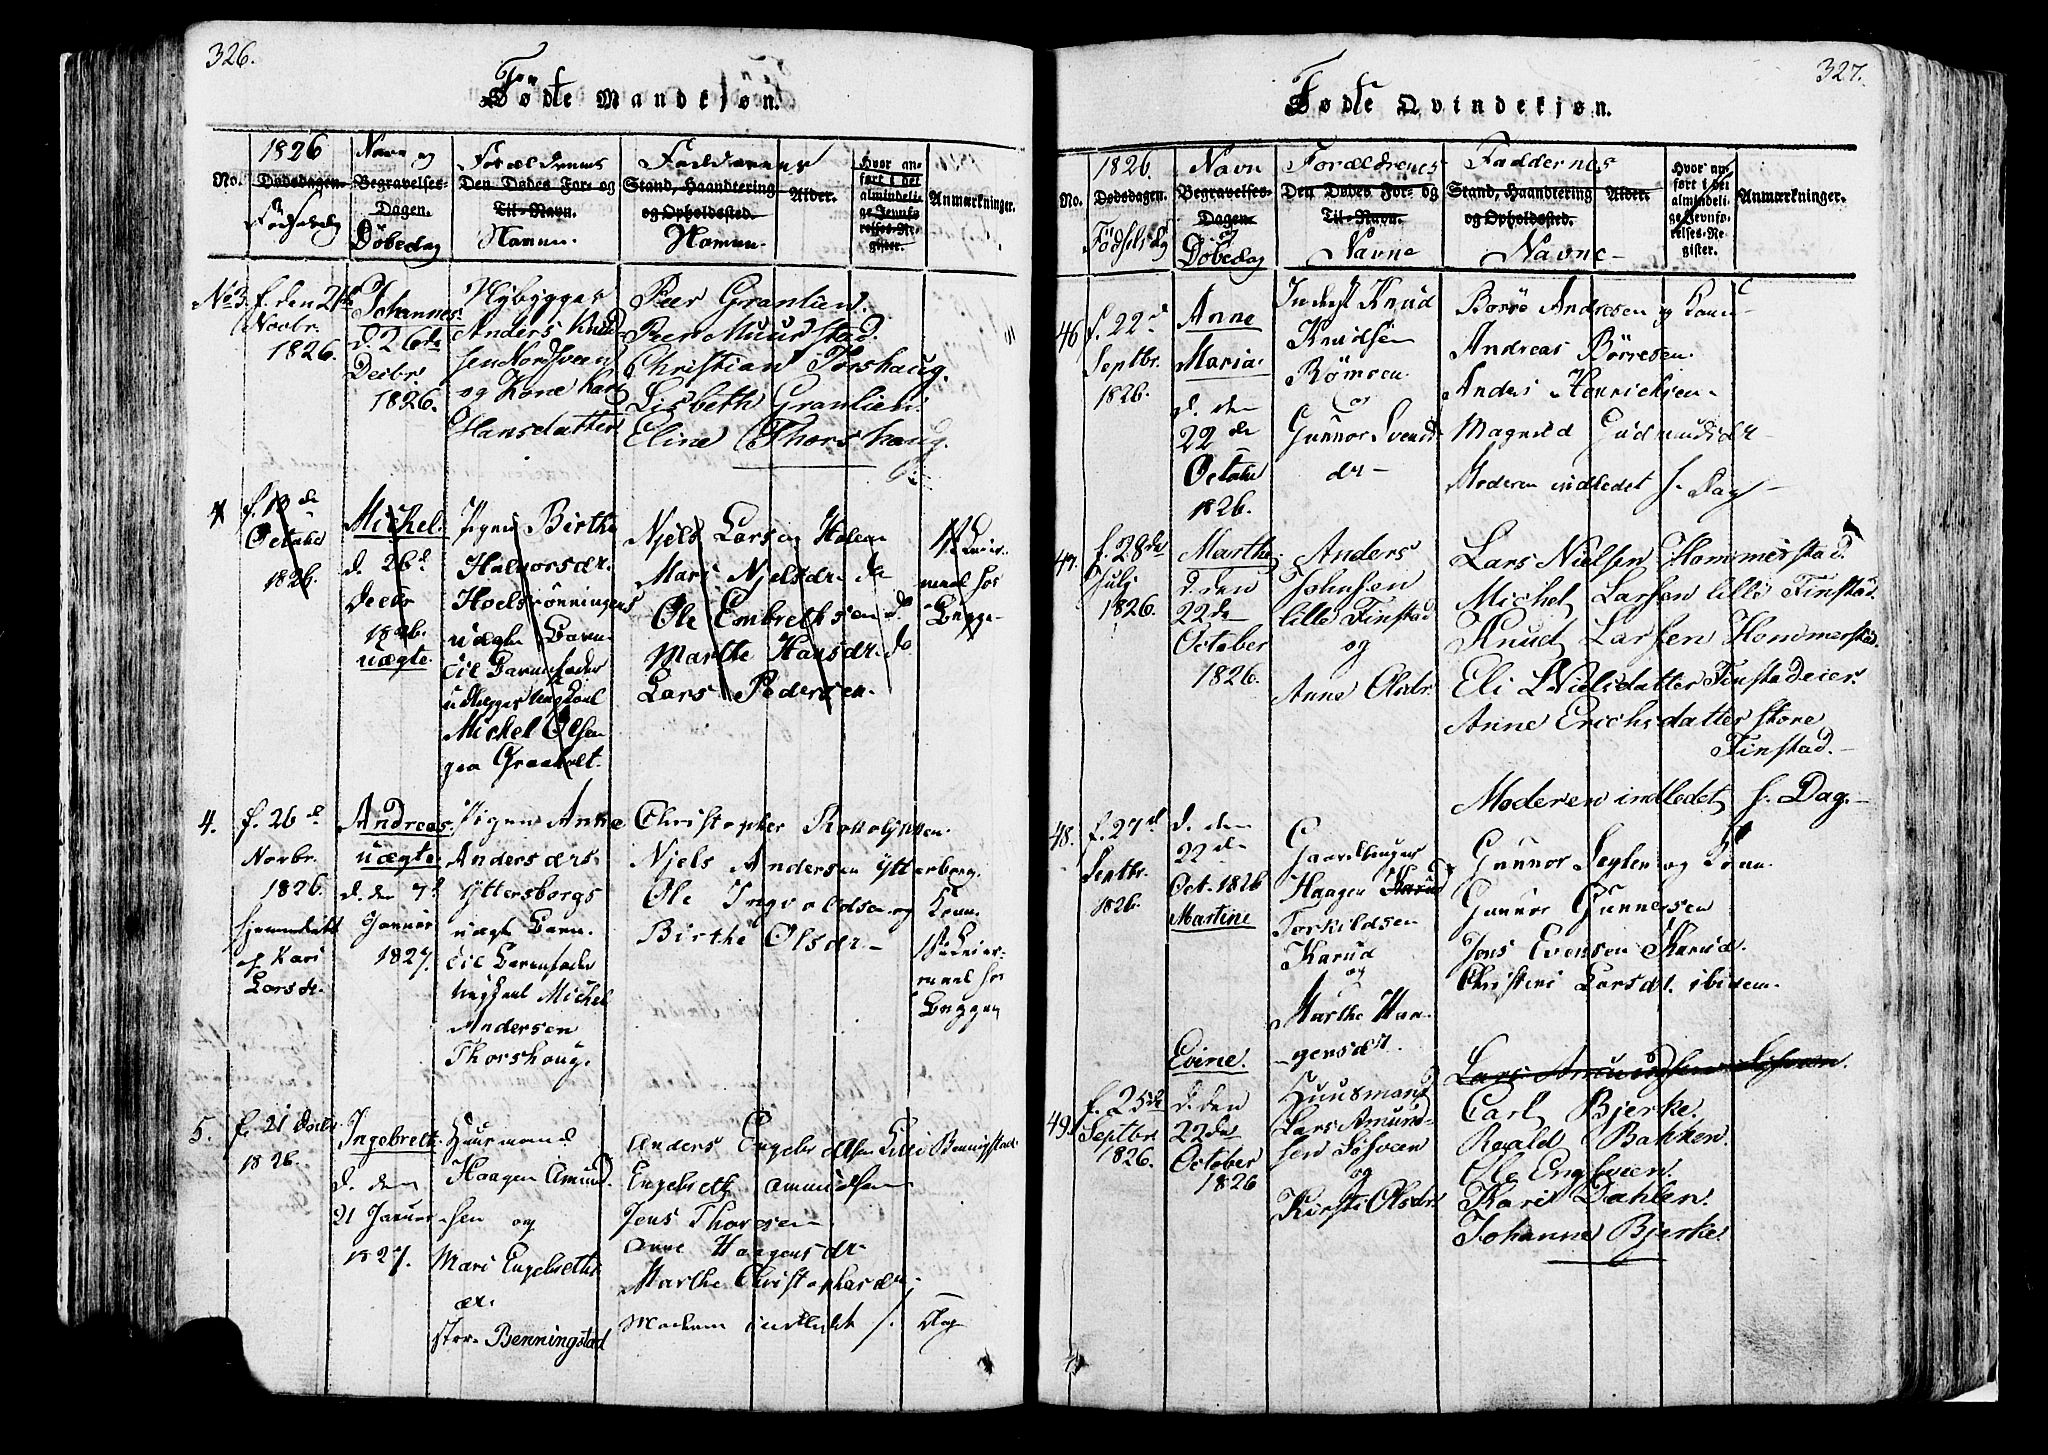 326.
Fødte Mandkjøn.
No.
1826
Dødsdagen.
Navn og
Begravelses-
Dagen.
Døbedag
Forældrenes
Den Dødes For- og
Til-Navn.
Faddernes
Stand, Haandtering
og Opholdssted.
Alder.
Hvor an-
ført i det
almindeli-
ge Jevnfø-
relses-Re-
gister.
Anmærkninger.
No 3. f. den 21de
Novbr.
1826.
Johannes.
d. 26de
Decbr
1826.
Nybygger
Anders Knud
sen Nordsveen
og Kone Kari
Hansdatter
Peer Granlien.
Peer Muurstad.
Christian Torshaug.
Lisbeth Granlien.
Eline Thorshaug.
f. 13de
October
1826.
Michel.
d. 26d.
Decbr
1826.
uægte.
Pigen Birthe
Halvorsdr.
Hoelsrønningens
uægte Barn
til Barnefader
Michel Olsen
paa Graaholt.
Njels Larsen Holen
Mari Njelsdr. do
Ole Embrethsen do
Marthe Hansdr. do
Lars Pedersen.
4.
f. 26d.
Novbr.
1826.
hjemmedøbt
af Kari
Larsdr.
Andreas.
uægte.
d. den 7d
Januar
1827.
Pigen Anne
Andersdrs
Yttersborgs
uægte Barn.
til Barnefader
Ungkarl Michel
Andersen
Thorshoug.
Christopher
Njels Andersen Ytterborg.
Ole Ingvoldsen og Kone.
Birthe Olsdr.
1ste Leier-
maal for
Begge
5.
f. 21 Decbr.
1826.
Ingebreth.
d. den
21 Januar
1827.
Huusmand
Haagen Amund
sen og
Mari Engebreths
dr.
store Benningstad
Anders Engebrethsen Lille Benningstad
Engebreth Amundsen
Jens Thoresen
Anne Haagensdr
Marthe Christophersdr
Moderen indledt s. Dag
327.
Fødte Qvindekjøn.
No.
1826.
Dødsdagen.
Fødselsdag
Navn
Begravelses-
Dagen
og
Døbedag
Forældrenes
Den Dødes For- og
Til-Navn.
Navne
Faddernes
Stand, Haandtering
og Opholdssted.
Navne
Alder.
Hvor an-
ført i det
almindeli-
ge Jevnfø-
relses-Re-
gister.
Anmærkninger.
46
f. 22d
Septbr.
1826.
Anne
Maria
d. den
22de
October
1826.
Inderst Knud
Knudsen
Rømoen
og
Gunnor Svends
dr
Børre Andresen og Kone
Andreas Børresen.
Anders Henrichsen
Magnild Gudmundsdr
Moderen indledet s. Dag
47.
f. 28de
July
1826.
Marthe.
d. den
22de
October
1826.
Anders
Johnsen
lille Finstad
og
Anne Olsdr.
Lars Nielsen Hommerstad.
Michel Larsen lille Finstad
Knud Larsen Hommerstad.
Eli Nielsdatter Finstadeier.
Anne Erichsdatter store
Finstad.
Moderen indledet s. Dag.
48.
f. 27d
Septbr.
1826.
d. den
22de
Oct. 1826
Martine
Gaardbruger
Haagen
Torkildsen
Karud
og
Marthe Haa-
gensdr.
Gunnor Seglen og Kone.
Gunnor Gunnersen
Jens Evensen Karud.
Christine Larsdt. ibidem.
49.
f. 25de
Septbr.
1826.
Evine.
d. den
22de
October
1826
Huusmand
Lars Amund-
sen Løsveen
og
Kirsti Olsdr.
Lars Amundsen
Carl Bjerke.
Roald Bakken.
Ole Engeveen.
Kari Dahlen.
Johanne Bjerke